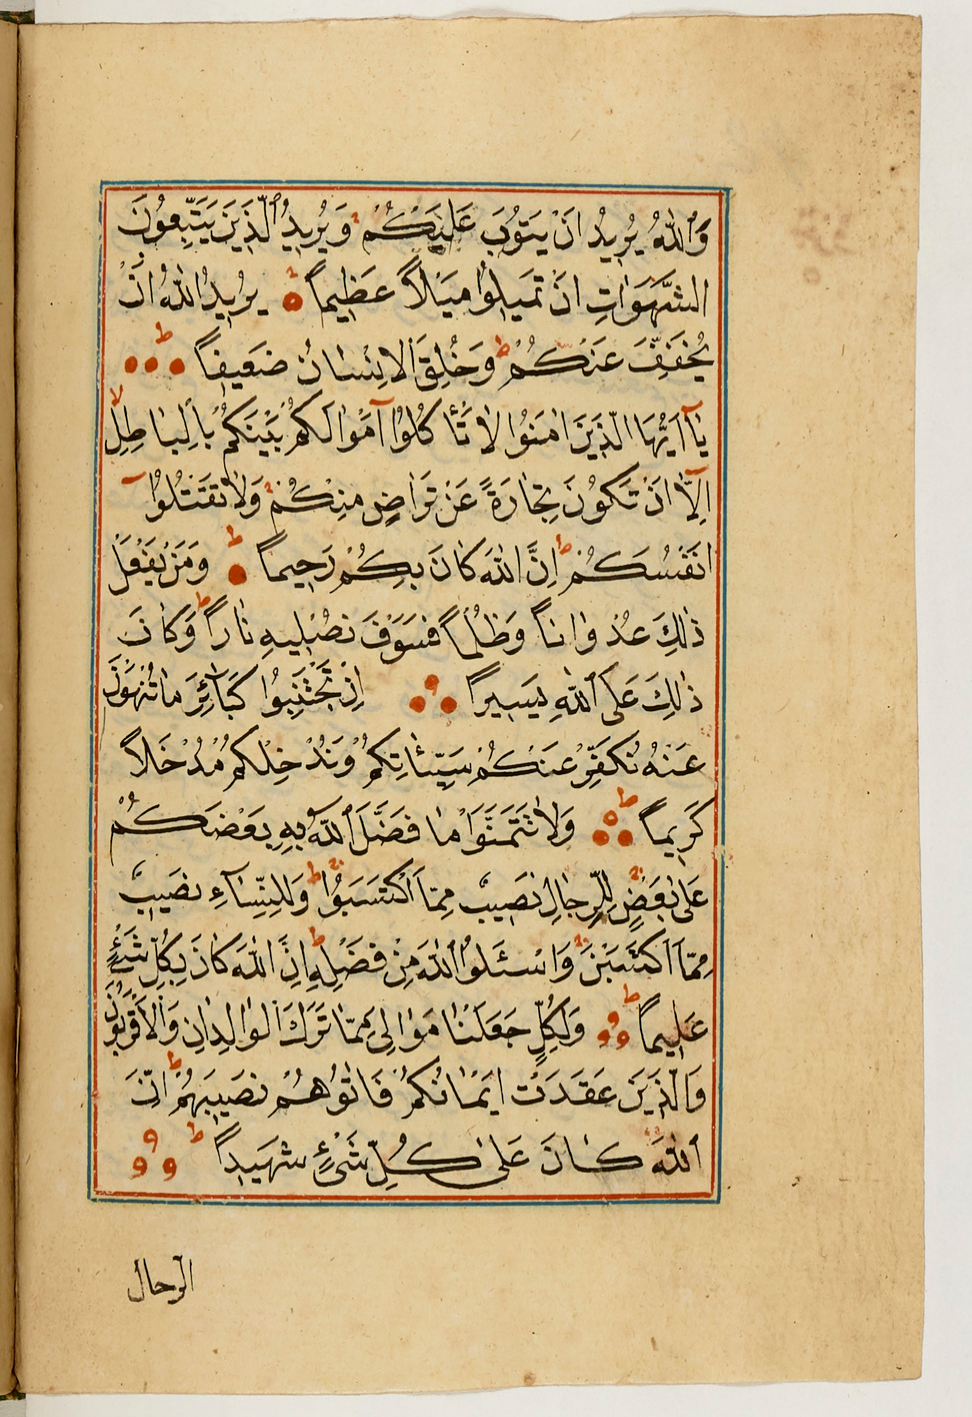 وَٱللّٰهُ يُرِيدُ اَنْ يَتُوبَ عَلَيْكُمْ وَيُرِيدُ ٱلَّذِينَ يَتَّبِعُونَ
الشَّهَوَاتِ اَنْ تَمِيلُوا مَيْلًا عَظِيمًا يُرِيدُ اللّٰهُ اَنْ
يُخَفِّفَ عَنْكُمْ ط وَخُلِقَ الْاِنْسَانُ ضَعِيفًا ط
يَآ اَيُّهَا الَّذِينَ اٰمَنُوا لَا تَأْكُلُوٓا اَمْوَالَكُمْ بَيْنَكُمْ بِالْبَاطِلِ لا
اِلَّآ اَنْ تَكُونَ تِجَارَةً عَنْ تَرَاضٍ مِنْكُمْ وَلَا تَقْتُلُوٓا
اَنْفُسَكُمْ ط اِنَّ اللّٰهَ كَانَ بِكُمْ رَحِيمًا ط وَمَنْ يَفْعَلْ
ذٰلِكَ عُدْوَانًا وَظُلْمًا فَسَوْفَ نُصْلِيهِ نَارًا ط وَكَانَ
ذٰلِكَ عَلَى ٱللّٰهِ يَسِيرًا اِنْ تَجْتَنِبُوا كَبَآئِرَ مَا تُنْهَوْنَ
عَنْهُ نُكَفِّرْ عَنْكُمْ سَيِّئَاتِكُمْ وَنُدْخِلْكُمْ مُدْخَلًا
كَرِيمًا ط وَلَا تَتَمَنَّوْا مَا فَضَّلَ ٱللّٰهُ بِهِ بَعْضَكُمْ
عَلٰى بَعْضٍ لِلرِّجَالِ نَصِيبٌ مِمَّا اكْتَسَبُوا ط وَلِلنِّسَآءِ نَصِيبٌ
مِمَّا اكْتَسَبْنَ وَاسْئَلُوا ٱللّٰهَ مِنْ فَضْلِهِ ط اِنَّ اللّٰهَ كَانَ بِكُلِّ شَيْءٍ
عَلِيمًا ط وَلِكُلٍّ جَعَلْنَا مَوَالِيَ مِمَّا تَرَكَ الْوَالِدَانِ وَالْاَقْرَبُونَ
وَالَّذِينَ عَقَدَتْ اَيْمَانُكُمْ فَاٰتُوهُمْ نَصِيبَهُمْ ط اِنَّ
ٱللّٰهَ كَانَ عَلٰى كُلِّ شَيْءٍ شَهِيدًا ط
الرجال